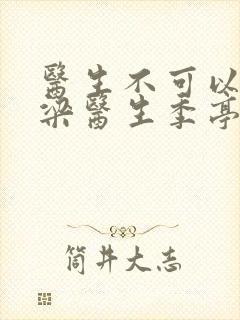 醫生不可以
梁醫生季亭
筒井大志